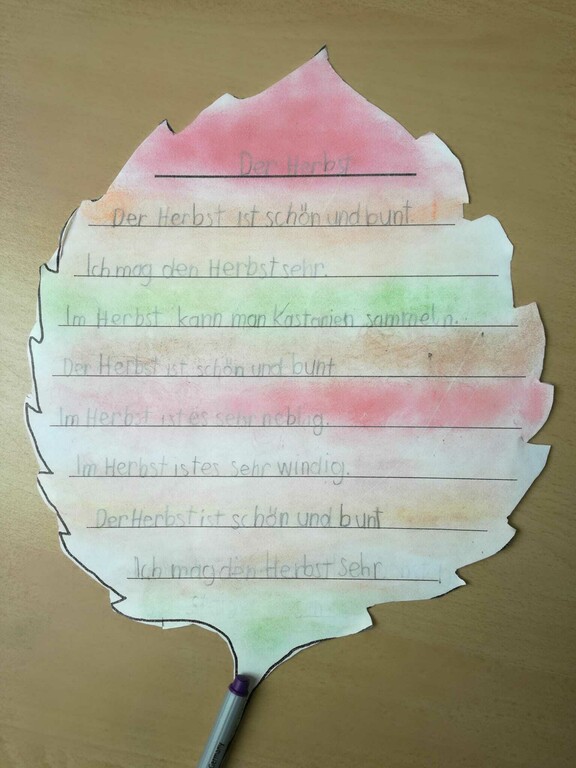 Der Herbst
Der Herbst ist schön und bunt.
Ich mag den Herbst sehr.
Im Herbst kann man Kastanien sammeln.
Der Herbst ist schön und bunt
Im Herbst ist es sehr neblig.
Im Herbst ist es sehr windig.
Der Herbst ist schön und bunt
Ich mag den Herbst sehr